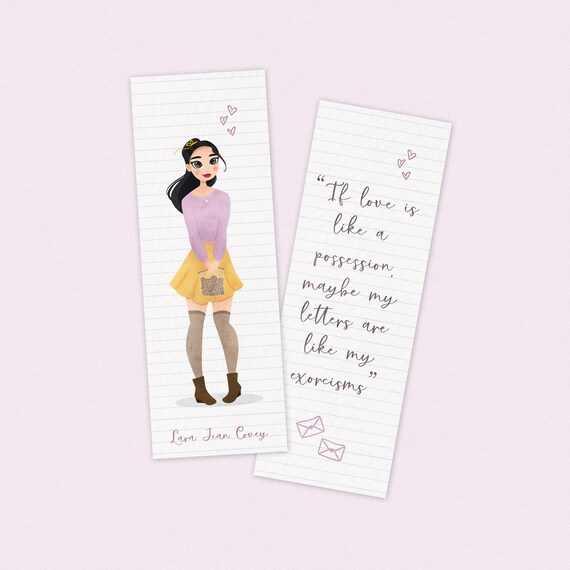 Lara Jean Covey
"If love is
like a
possession,
maybe my
letters are
like my
exorcisms"